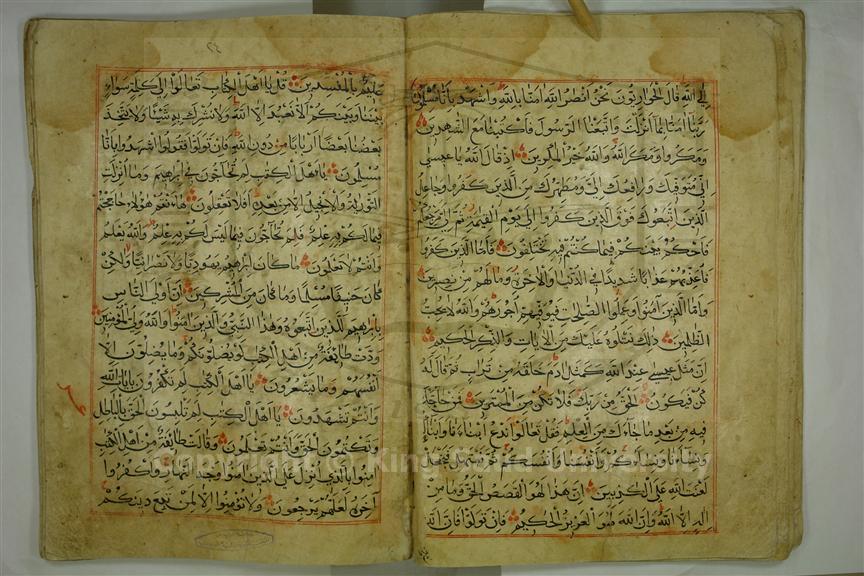 الى الله قال الحواريون نحن انصار الله امنا بالله واشهد بانا مسلمون
ربنا امنا بما انزلت واتبعنا الرسول فاكتبنا مع الشهدين
ومكروا ومكر الله والله خير المكرين اذ قال الله يا عيسى
اني متوفيك ورافعك الي ومطهرك من الذين كفروا وجاعل
الذين اتبعوك فوق الذين كفروا الى يوم القيمة ثم الي مرجعكم
فاحكم بينكم فيما كنتم فيه تختلفون فاما الذين كفروا
فاعذبهم عذابا شديدا في الدنيا والاخرة وما لهم من نصرين
واما الذين امنوا وعملوا الصلحت فيوفيهم اجورهم والله لا يحب
الظلمين ذلك نتلوه عليك من الايات والذكر الحكيم
ان مثل عيسى عند الله كمثل ادم خلقه من تراب ثم قال له
كن فيكون الحق من ربك فلا تكن من الممترين فمن حاجك
فيه من بعد ما جاءك من العلم فقل تعالوا ندع ابناءنا وابناءكم
ونساءنا ونساءكم وانفسنا وانفسكم ثم نبتهل فنجعل
لعنت الله على الكذبين ان هذا لهو القصص الحق وما من
اله الا الله وان الله لهو العزيز الحكيم فان تولوا فان الله
عليم بالمفسدين قل يا اهل الكتاب تعالوا الى كلمة سواء
بيننا وبينكم الا نعبد الا الله ولا نشرك به شيئا ولا يتخذ
بعضنا بعضا اربابا من دون الله فان تولوا فقولوا اشهدوا بانا
مسلمون يا اهل الكتب لم تحاجون في ابرهيم وما انزلت
التورية والانجيل الا من بعده افلا تعقلون ها انتم هؤلاء حاججتم
فيما لكم به علم فلم تحاجون فيما ليس لكم به علم والله يعلم
وانتم لا تعلمون ما كان ابرهيم يهوديا ولا نصرانيا ولكن
كان حنيفا مسلما وما كان من المشركين ان اولى الناس
بابرهيم للذين اتبعوه وهذا النبي والذين امنوا والله ولي المؤمنين
ودت طائفة من اهل الكتب لو يضلونكم وما يضلون الا
انفسهم وما يشعرون يا اهل الكتب لم تكفرون بايات الله
وانتم تشهدون يا اهل الكتب لم تلبسون الحق بالباطل
وتكتمون الحق وانتم تعلمون وقالت طائفة من اهل الكتب
امنوا بالذي انزل على الذين امنوا وجه النهار واكفروا
اخره لعلهم يرجعون ولا تؤمنوا الا لمن تبع دينكم
Copyright © King Saud University